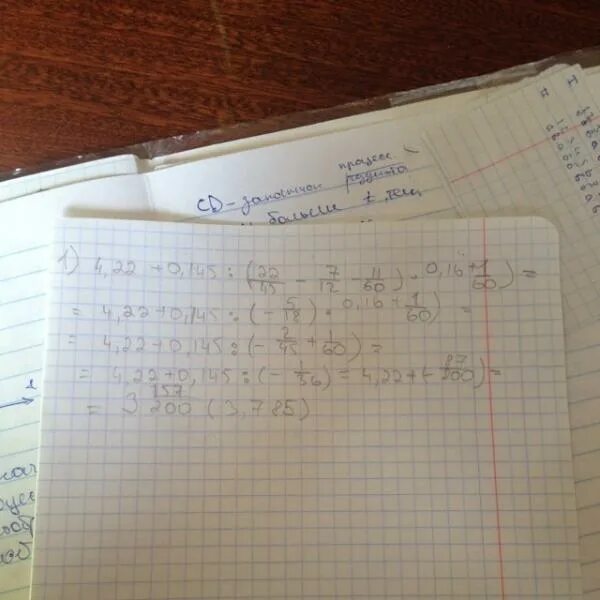 процесс
СД-
больше t, тем
1) 4,22 + 0,145 : (22/45 - 7/12 - 11/60) · 0,16 + 1/60) =
= 4,22 + 0,145 : (- 5/18) · 0,16 + 1/60) =
= 4,22 + 0,145 : (- 2/45 + 1/60) =
= 4,22 + 0,145 : (- 1/36) = 4,22 + (- 87/200) =
= 3 157/200 (3,785)